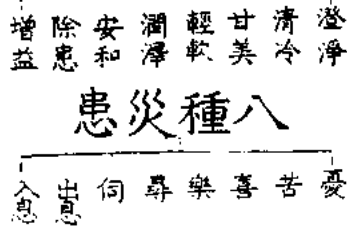 澄淨 清冷 甘美 輕軟 潤澤 安和 除患 增益
八種災患
憂 苦 喜 樂 尋 伺 出息 入息